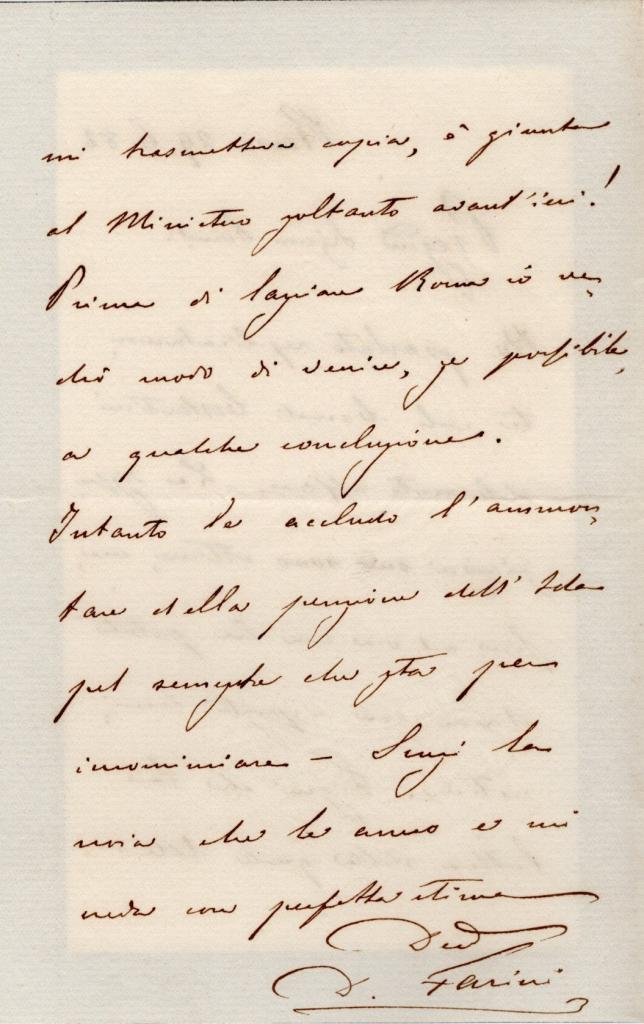 mi trasmetteva copia, è giunta
al Ministero soltanto avant'ieri!
Prima di lasciare Roma io ve-
drò modo di venire, se possibile,
a qualche conclusione.
Intanto Le accludo l'ammon-
tare della pensione dell'Ida
pel semestre che sta per
incominciare – Scusi la
noia che le arreco e mi
creda con perfetta stima
Dev
D. Farini